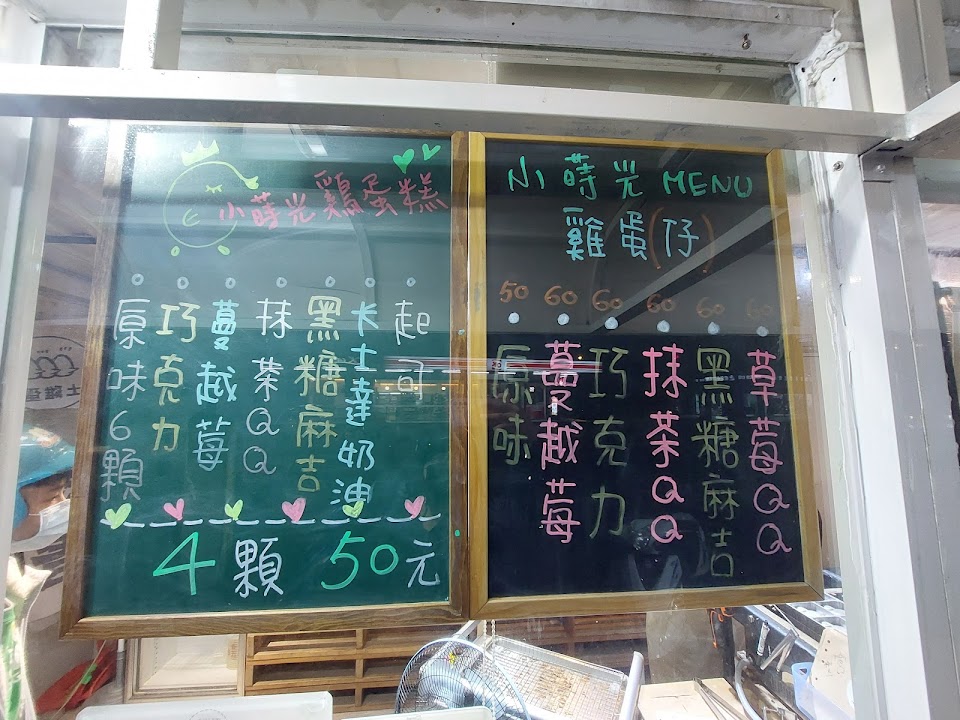 小蒔光鷄蛋糕
原味6顆
巧克力
蔓越莓
抹茶QQ
黑糖麻吉
卡士達奶油
起司
4顆 50元
小蒔光 MENU
雞蛋(仔)
50 60 60 60 60 60
原味
蔓越莓
巧克力
抹茶QQ
黑糖麻吉
草莓QQ